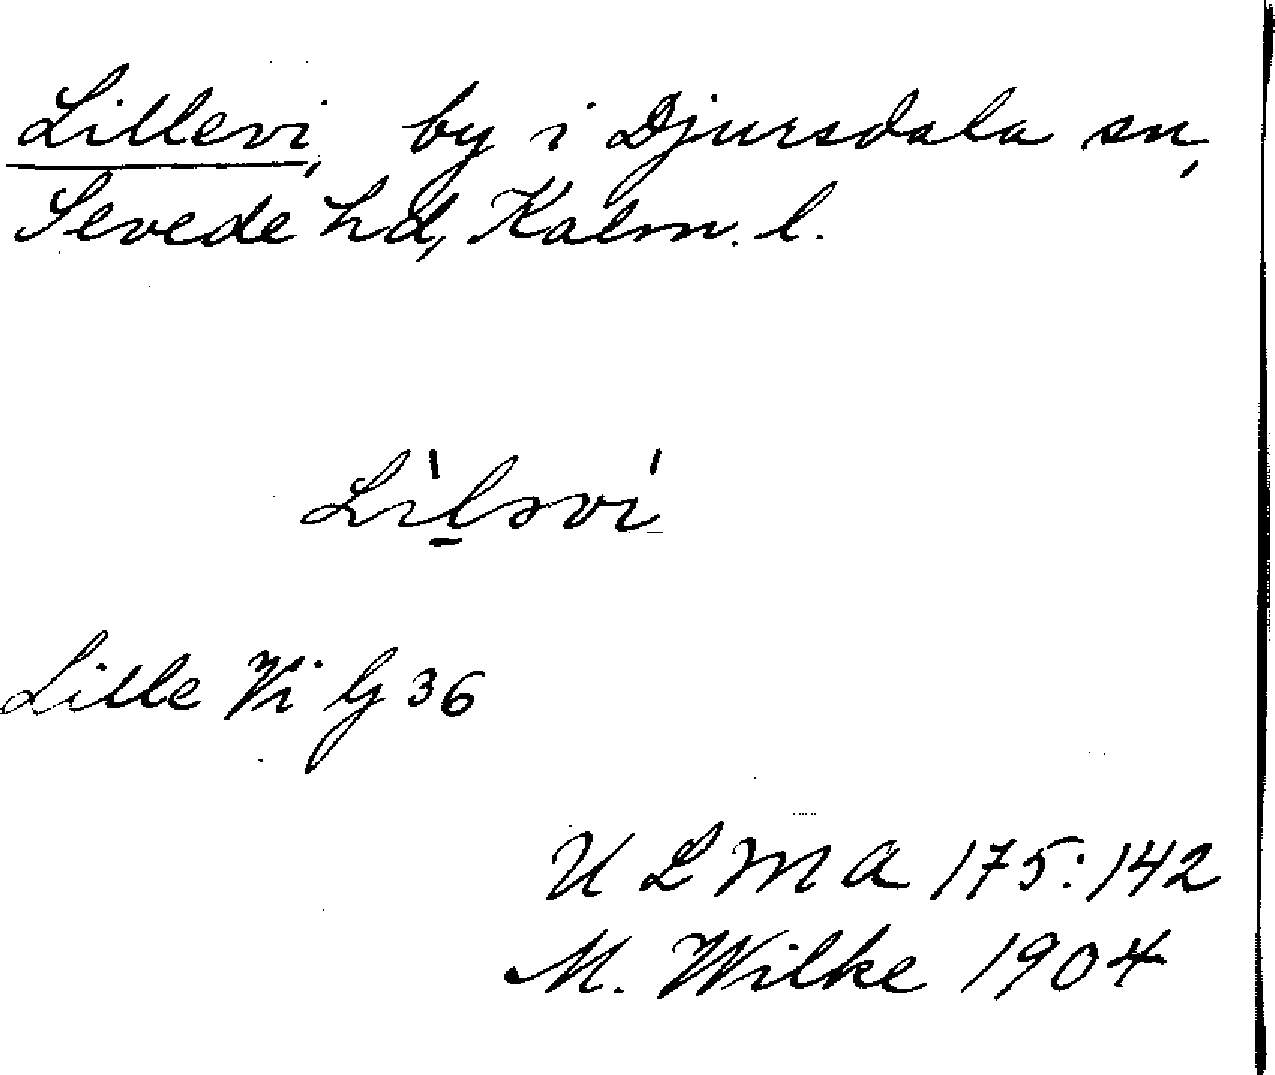 Lillevi, by i Djursdala sn,
Sevede hd, Kalm. l.
Lìl̠əví
Lille Vi G 36
ULMA 175:142
M. Wilke 1904